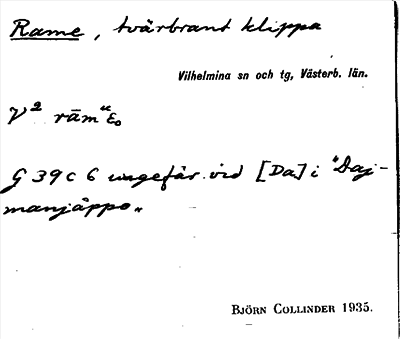 Rame, tvärbrant klippa
Vilhelmina sn och tg, Västerb. län.
V² räm"
G 39 c 6 ungefär vid [Da] i "Daj-
manjäppo"
BJÖRN COLLINDER 1935.